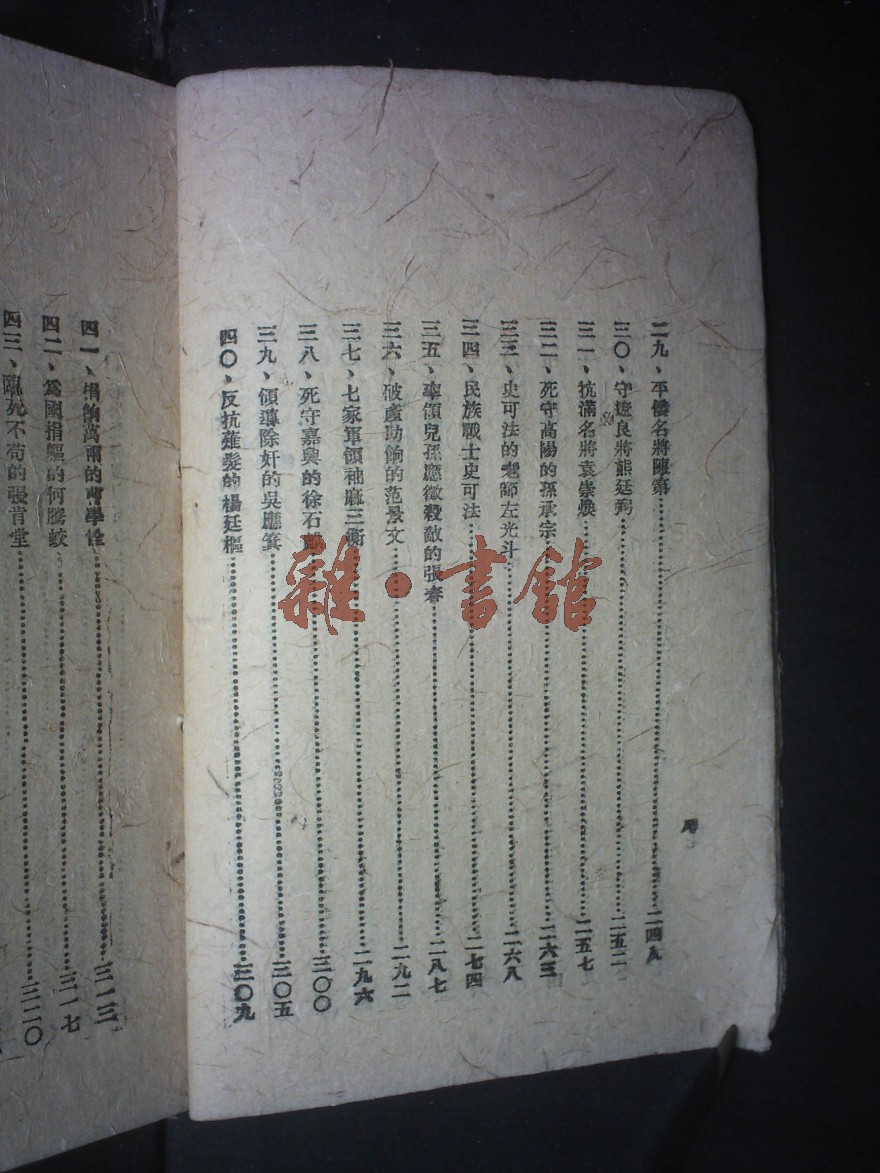 二九、平倭名將陳第……二四八
三〇、守遼良將熊廷弼……二五二
三一、抗滿名將袁崇煥……二五七
三二、死守高陽的孫承宗……二六三
三三、史可法的老師左光斗……二六八
三四、民族戰士史可法……二七四
三五、率領兒孫應徵殺敵的張春……二八七
三六、破產助餉的范景文……二九二
三七、七家軍領袖麻三衡……二九六
三八、死守嘉興的徐石麒……三〇〇
三九、領導除奸的吳應箕……三〇五
四〇、反抗薙髮的楊廷樞……三〇九
四一、捐餉萬兩的曹學佺……三一三
四二、爲國捐軀的何騰蛟……三一七
四三、臨死不苟的張肯堂……三二〇
雜·書館